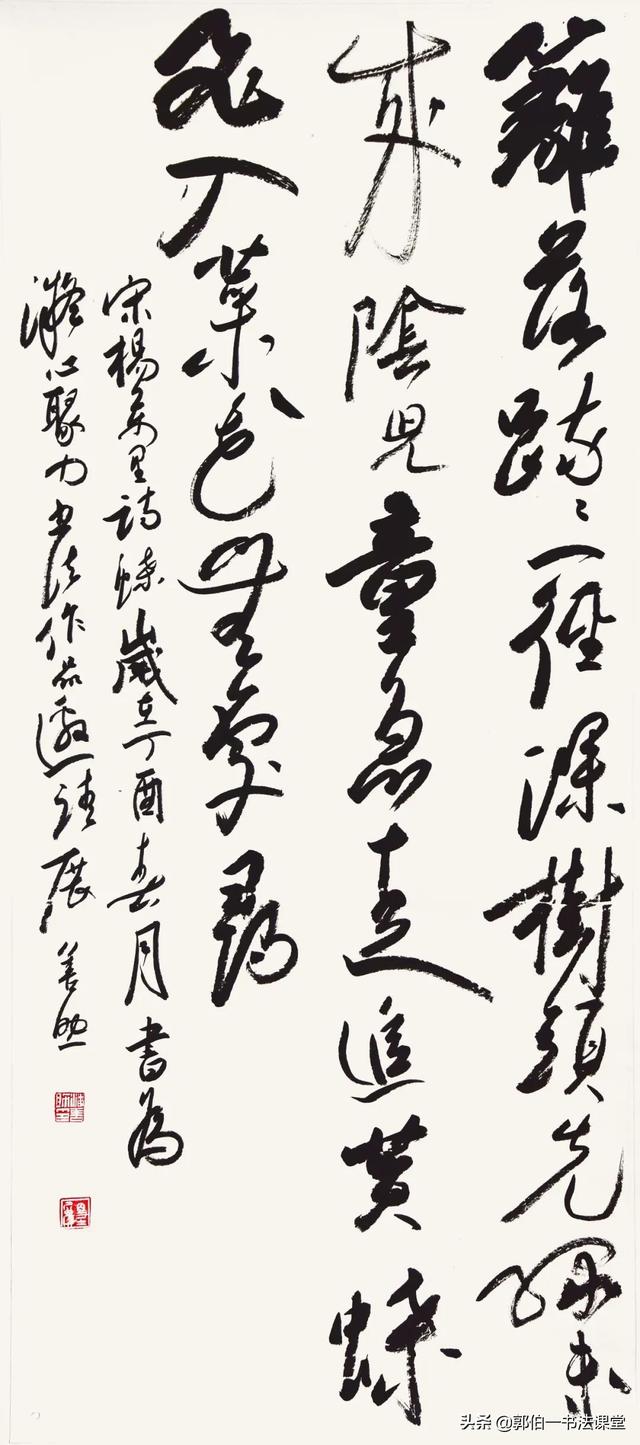 籬落踈〻一徑深樹頭先綠未
成陰兒童急走追黄蝶
飛入菜花無處尋
宋楊萬里詩蝶歲在丁酉春月書為
凝心聚力書法作品邀請展善
头条 @郭伯一书法课堂